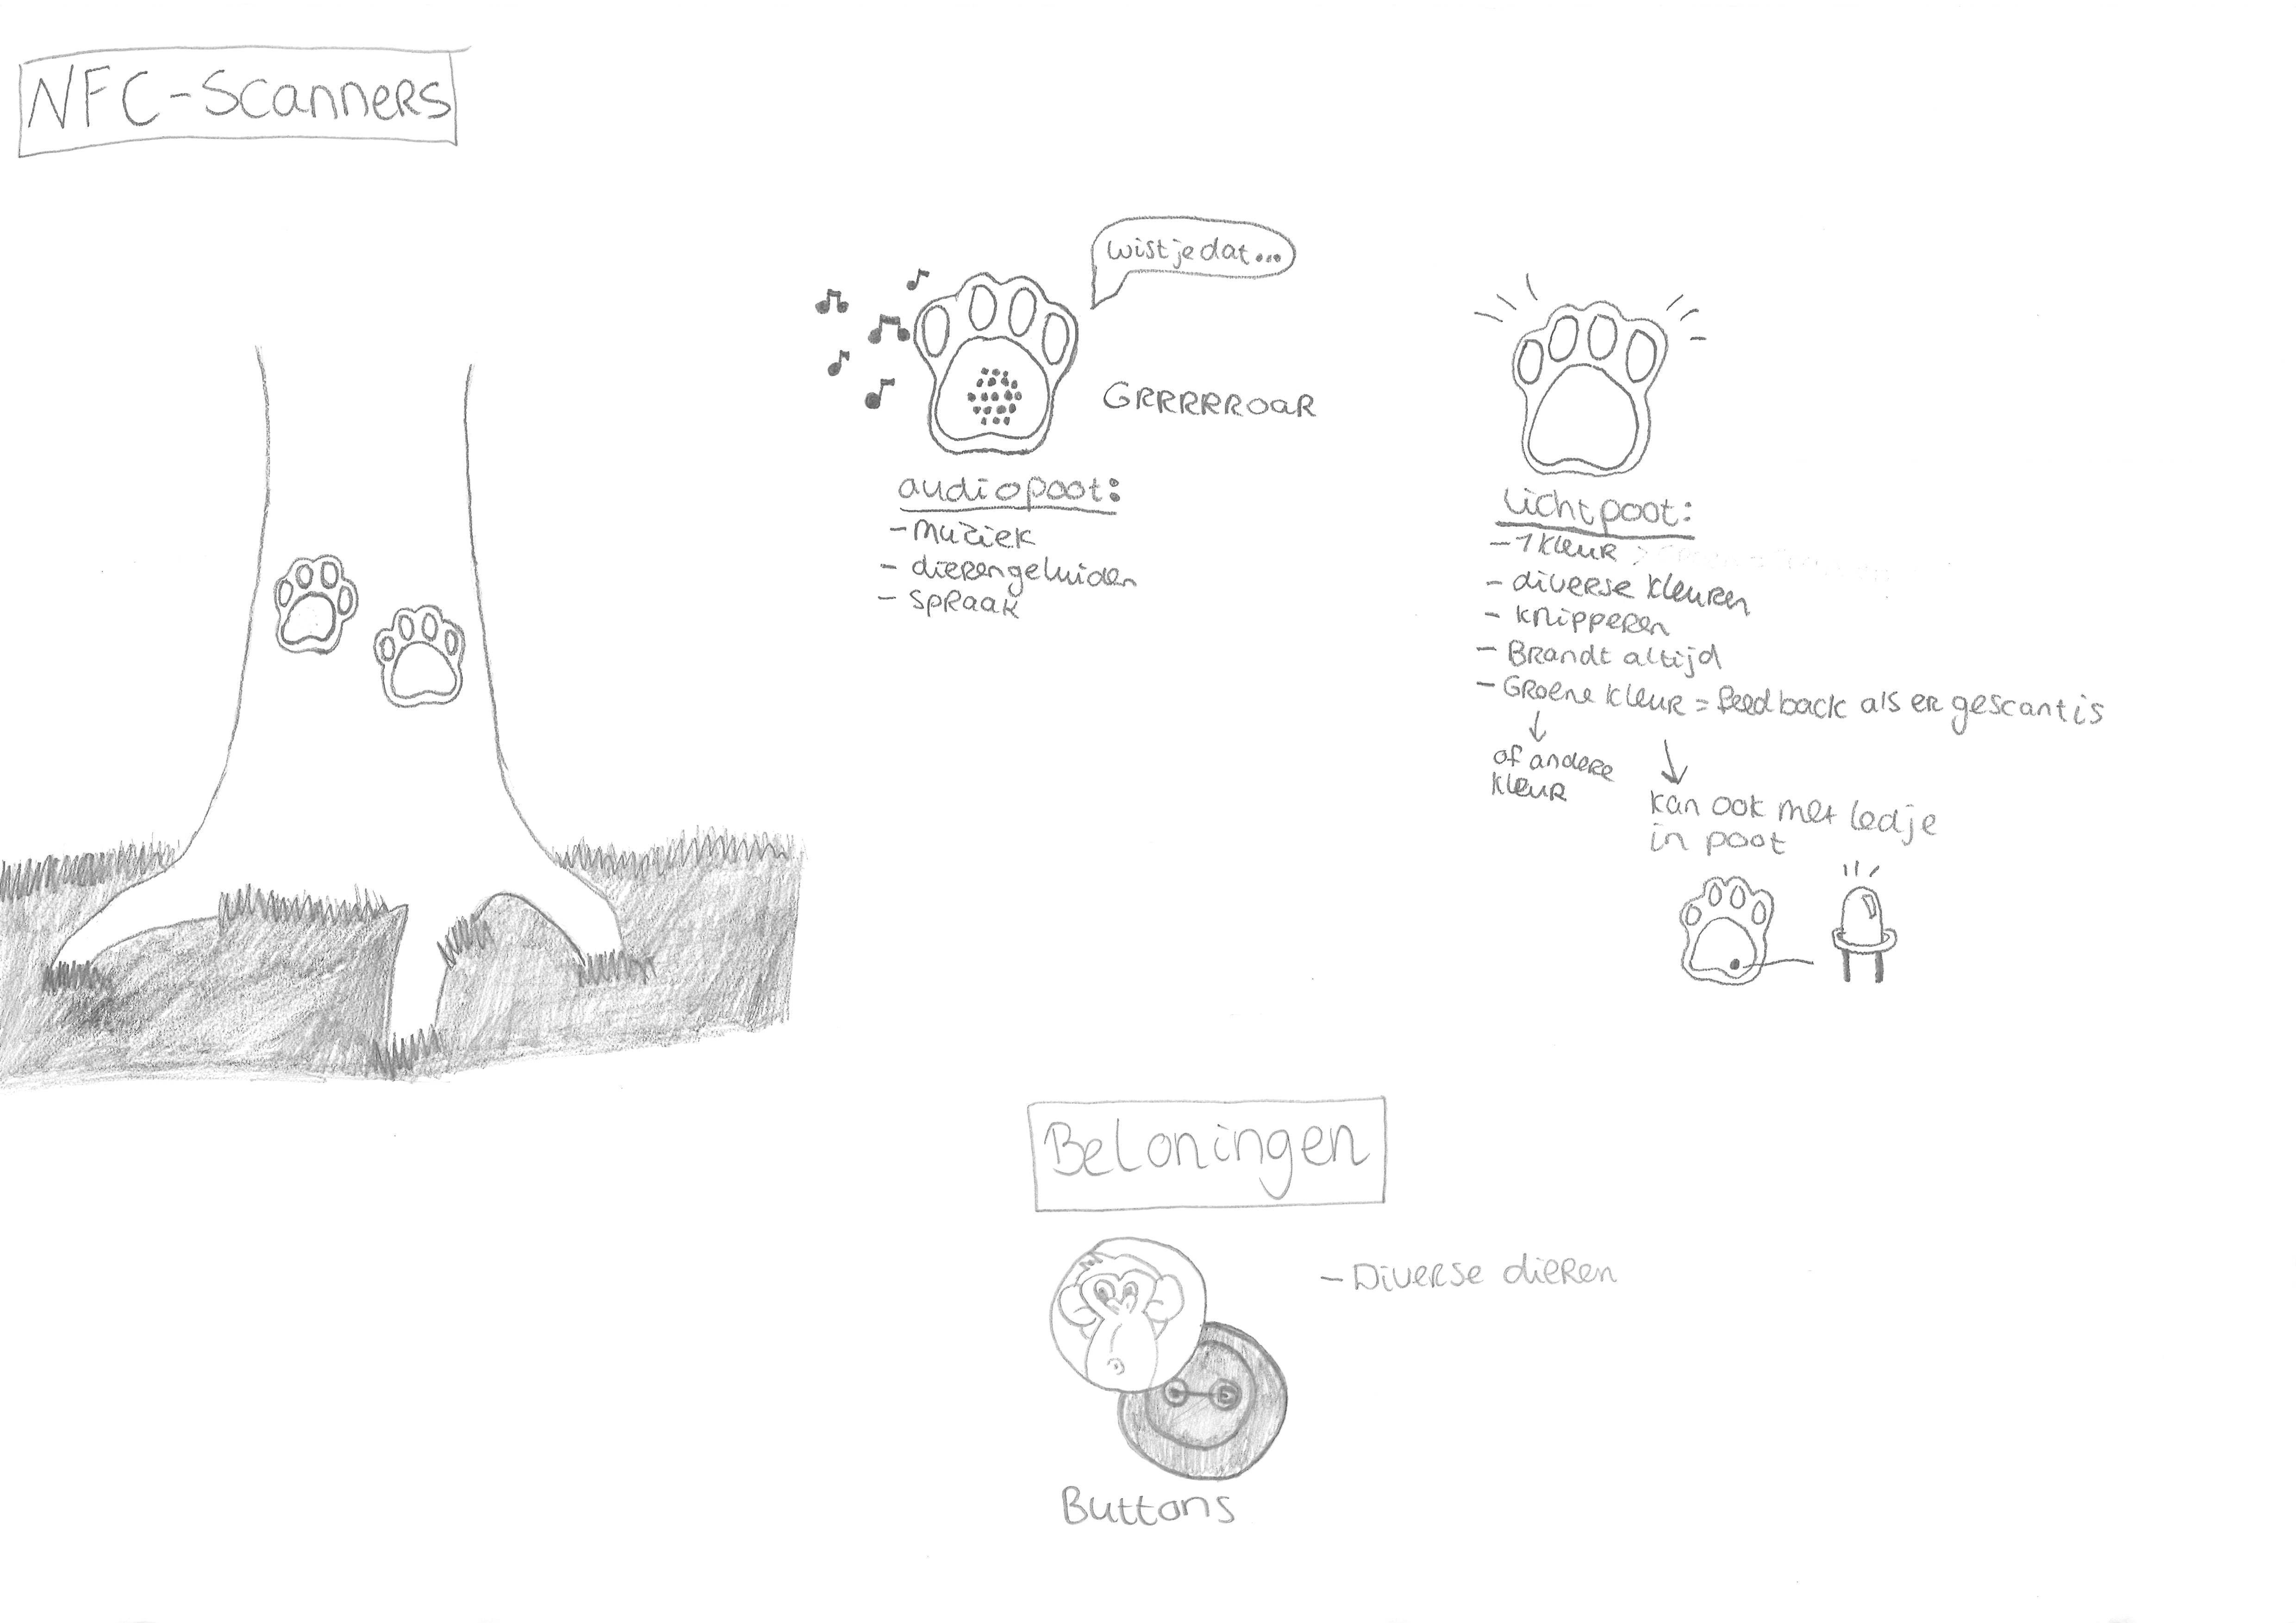 NFC-Scanners
wist je dat...
GRRRRROAR
audiopoot:
- muziek
- dierengeluiden
- spraak
Lichtpoot:
- 1 kleur
- diverse kleuren
- knipperen
- Brandt altijd
- Groene kleur = feedback als er gescant is
of andere
kleur
kan ook met ledje
in poot
Beloningen
- Diverse dieren
Buttons